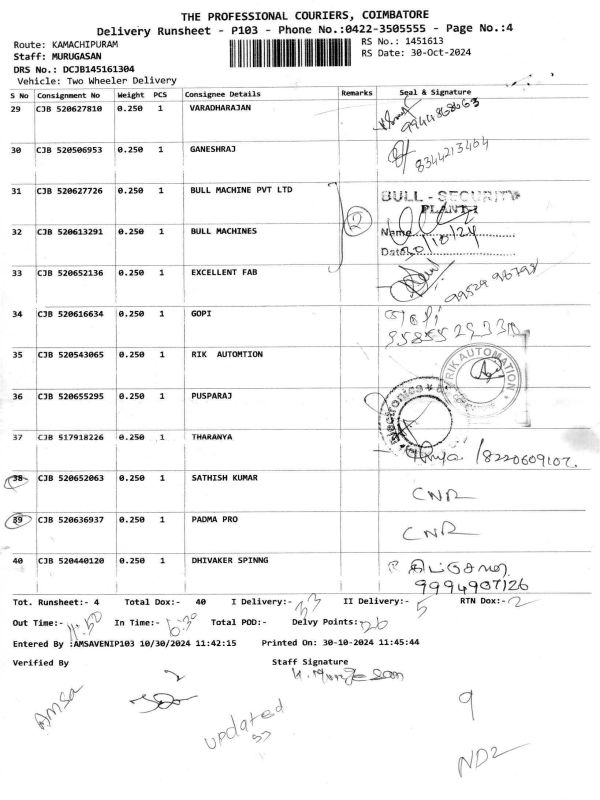 THE PROFESSIONAL COURIERS, COIMBATORE
Delivery Runsheet - P103 - Phone No.:0422-3505555 - Page No.:4
Route: KAMACHIPURAM
RS No.: 1451613
Staff: MURUGASAN
RS Date: 30-Oct-2024
DRS No.: DCJB145161304
Vehicle: Two Wheeler Delivery
S No Consignment No Weight PCS Consignee Details Remarks Seal & Signature
29 CJB 520627810 0.250 1 VARADHARAJAN
30 CJB 520506953 0.250 1 GANESHRAJ 8344213464
31 CJB 520627726 0.250 1 BULL MACHINE PVT LTD BULL - SECURITY
PLANT-1
32 CJB 520613291 0.250 1 BULL MACHINES Name
Date 30/10/24
33 CJB 520652136 0.250 1 EXCELLENT FAB
34 CJB 520616634 0.250 1 GOPI
35 CJB 520543065 0.250 1 RIK AUTOMTION RIK AUTOMATION
36 CJB 520655295 0.250 1 PUSPARAJ
37 CJB 517918226 0.250 1 THARANYA /8220609107.
38 CJB 520652063 0.250 1 SATHISH KUMAR CNR
39 CJB 520636937 0.250 1 PADMA PRO CNR
40 CJB 520440120 0.250 1 DHIVAKER SPINNG
9994907126
Tot. Runsheet:- 4 Total Dox:- 40 I Delivery:- 33 II Delivery:- 5 RTN Dox:- 2
Out Time:- 11:50 In Time:- 6:30 Total POD:- Delvy Points:- 26
Entered By :AMSAVENIP103 10/30/2024 11:42:15 Printed On: 30-10-2024 11:45:44
Verified By Staff Signature
Amsa
updated
9
ND2